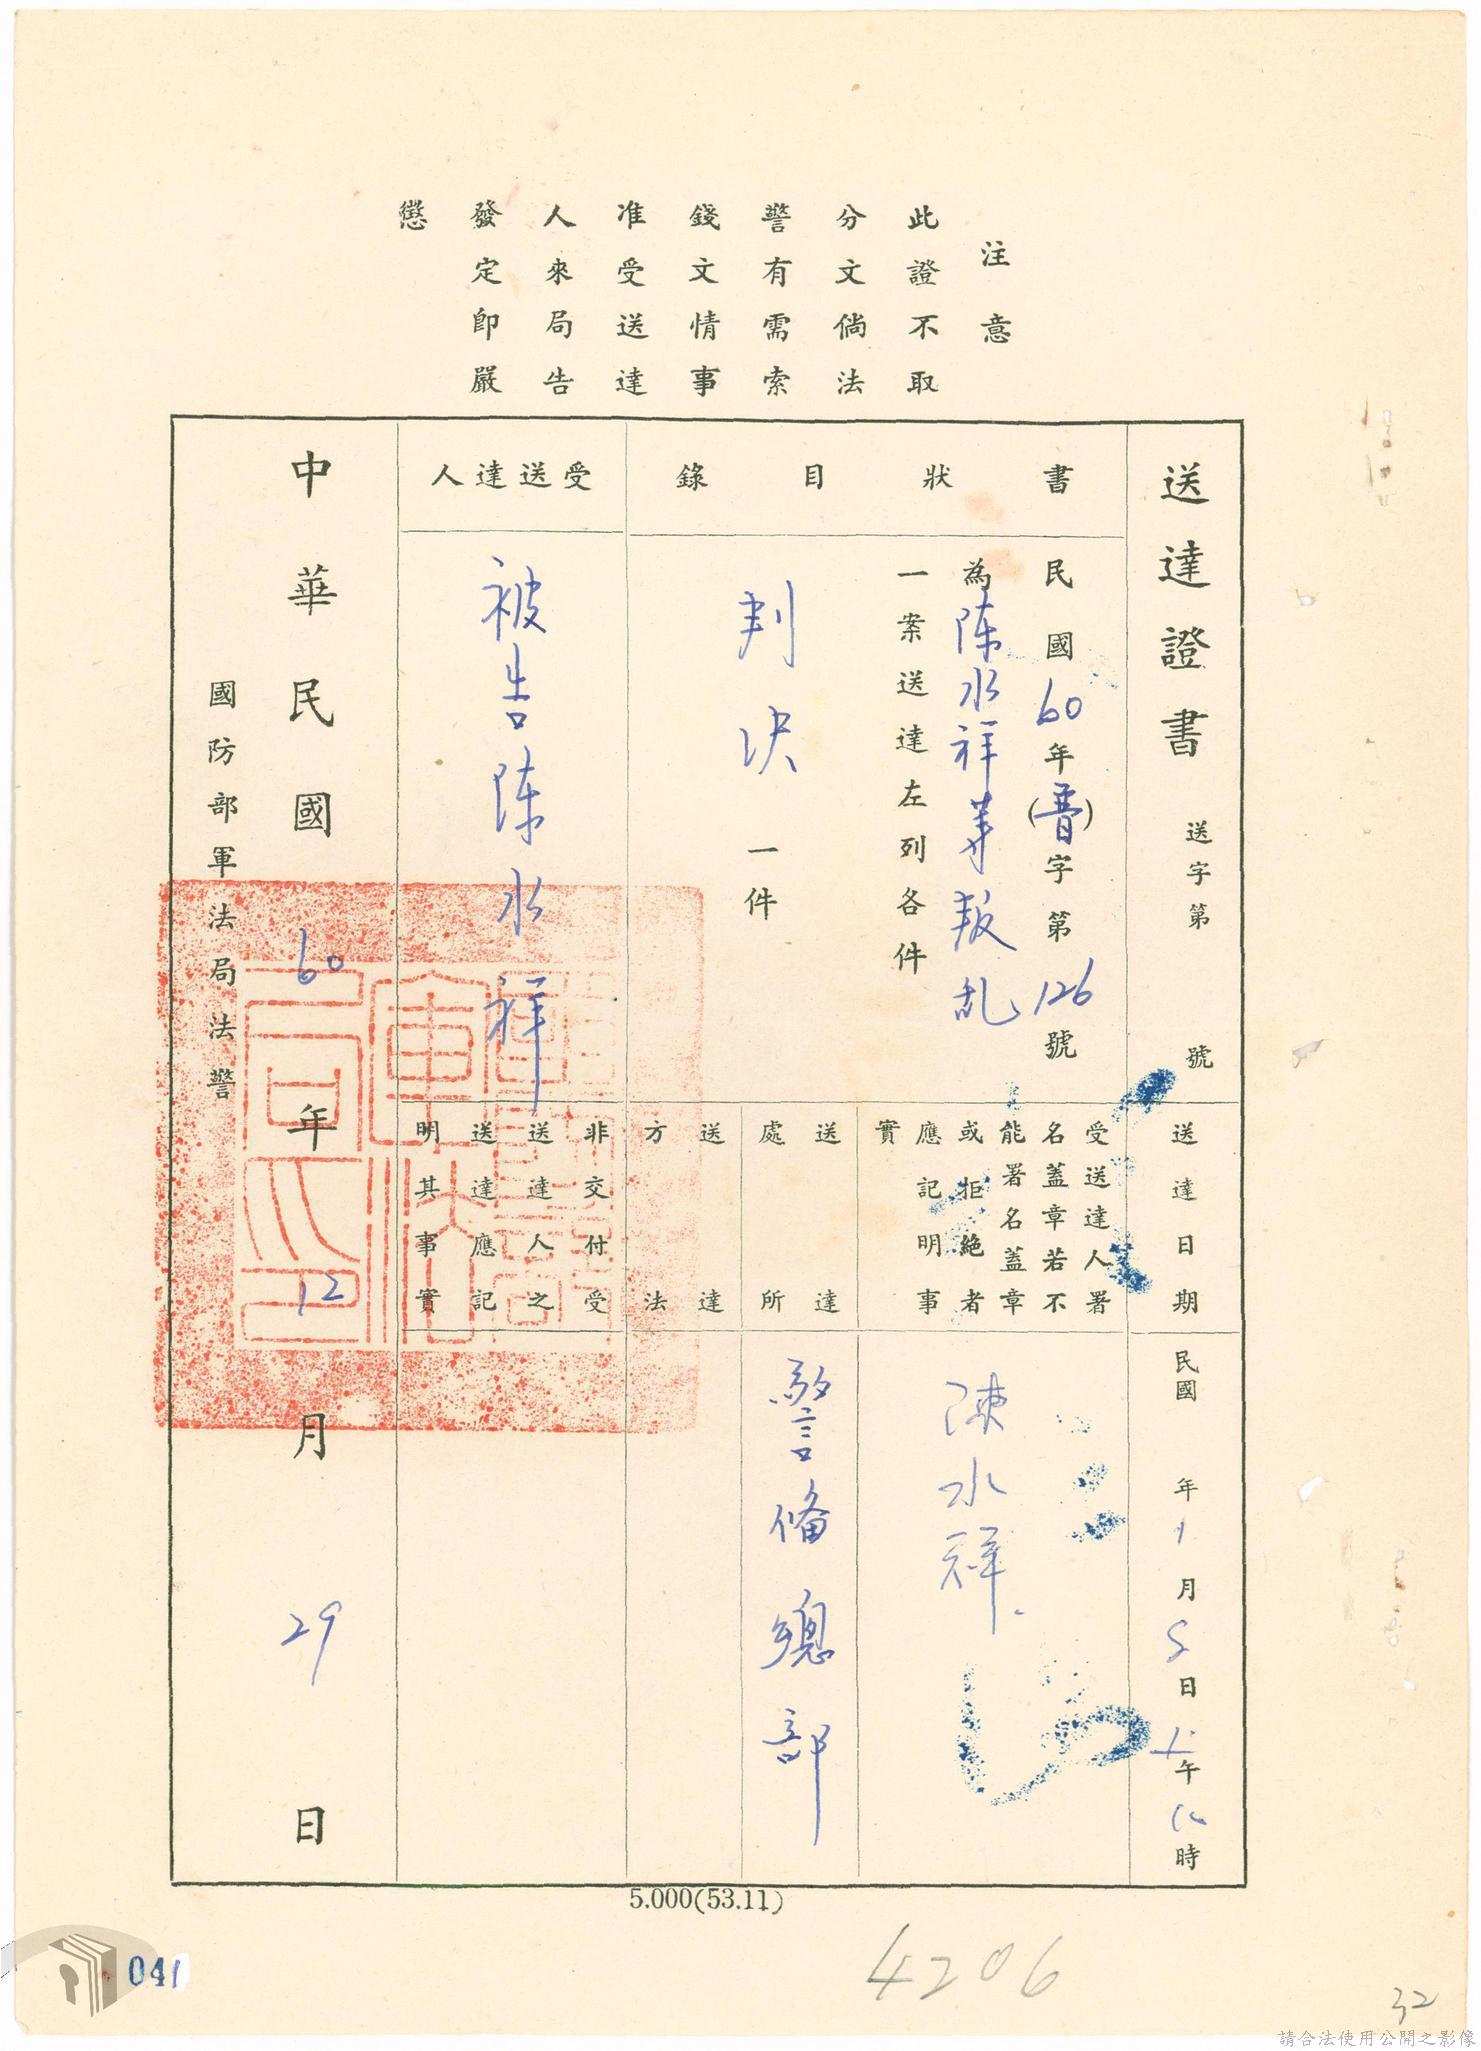 注意
此證不取
分文倘法
警有需索
錢文情事
准受送達
人來局告
發定即嚴
懲
送達證書 送字第 號
書狀目錄
民國60年(普)字第126號
為陳水祥等叛乱
一案送達左列各件
判決一件
受送達人
被告陳水祥
送達日期
民國 年1月5日上午10時
受送達人署
名蓋章若不
能署名蓋章
或拒絕者
應記明事
實
陳水祥
送達
處所
警備總部
送達
方法
非交付受
送達人之
送達應記
明其事實
中華民國60年12月29日
國防部軍法局法警
5.000(53.11)
041
4206
32
請合法使用公開之影像